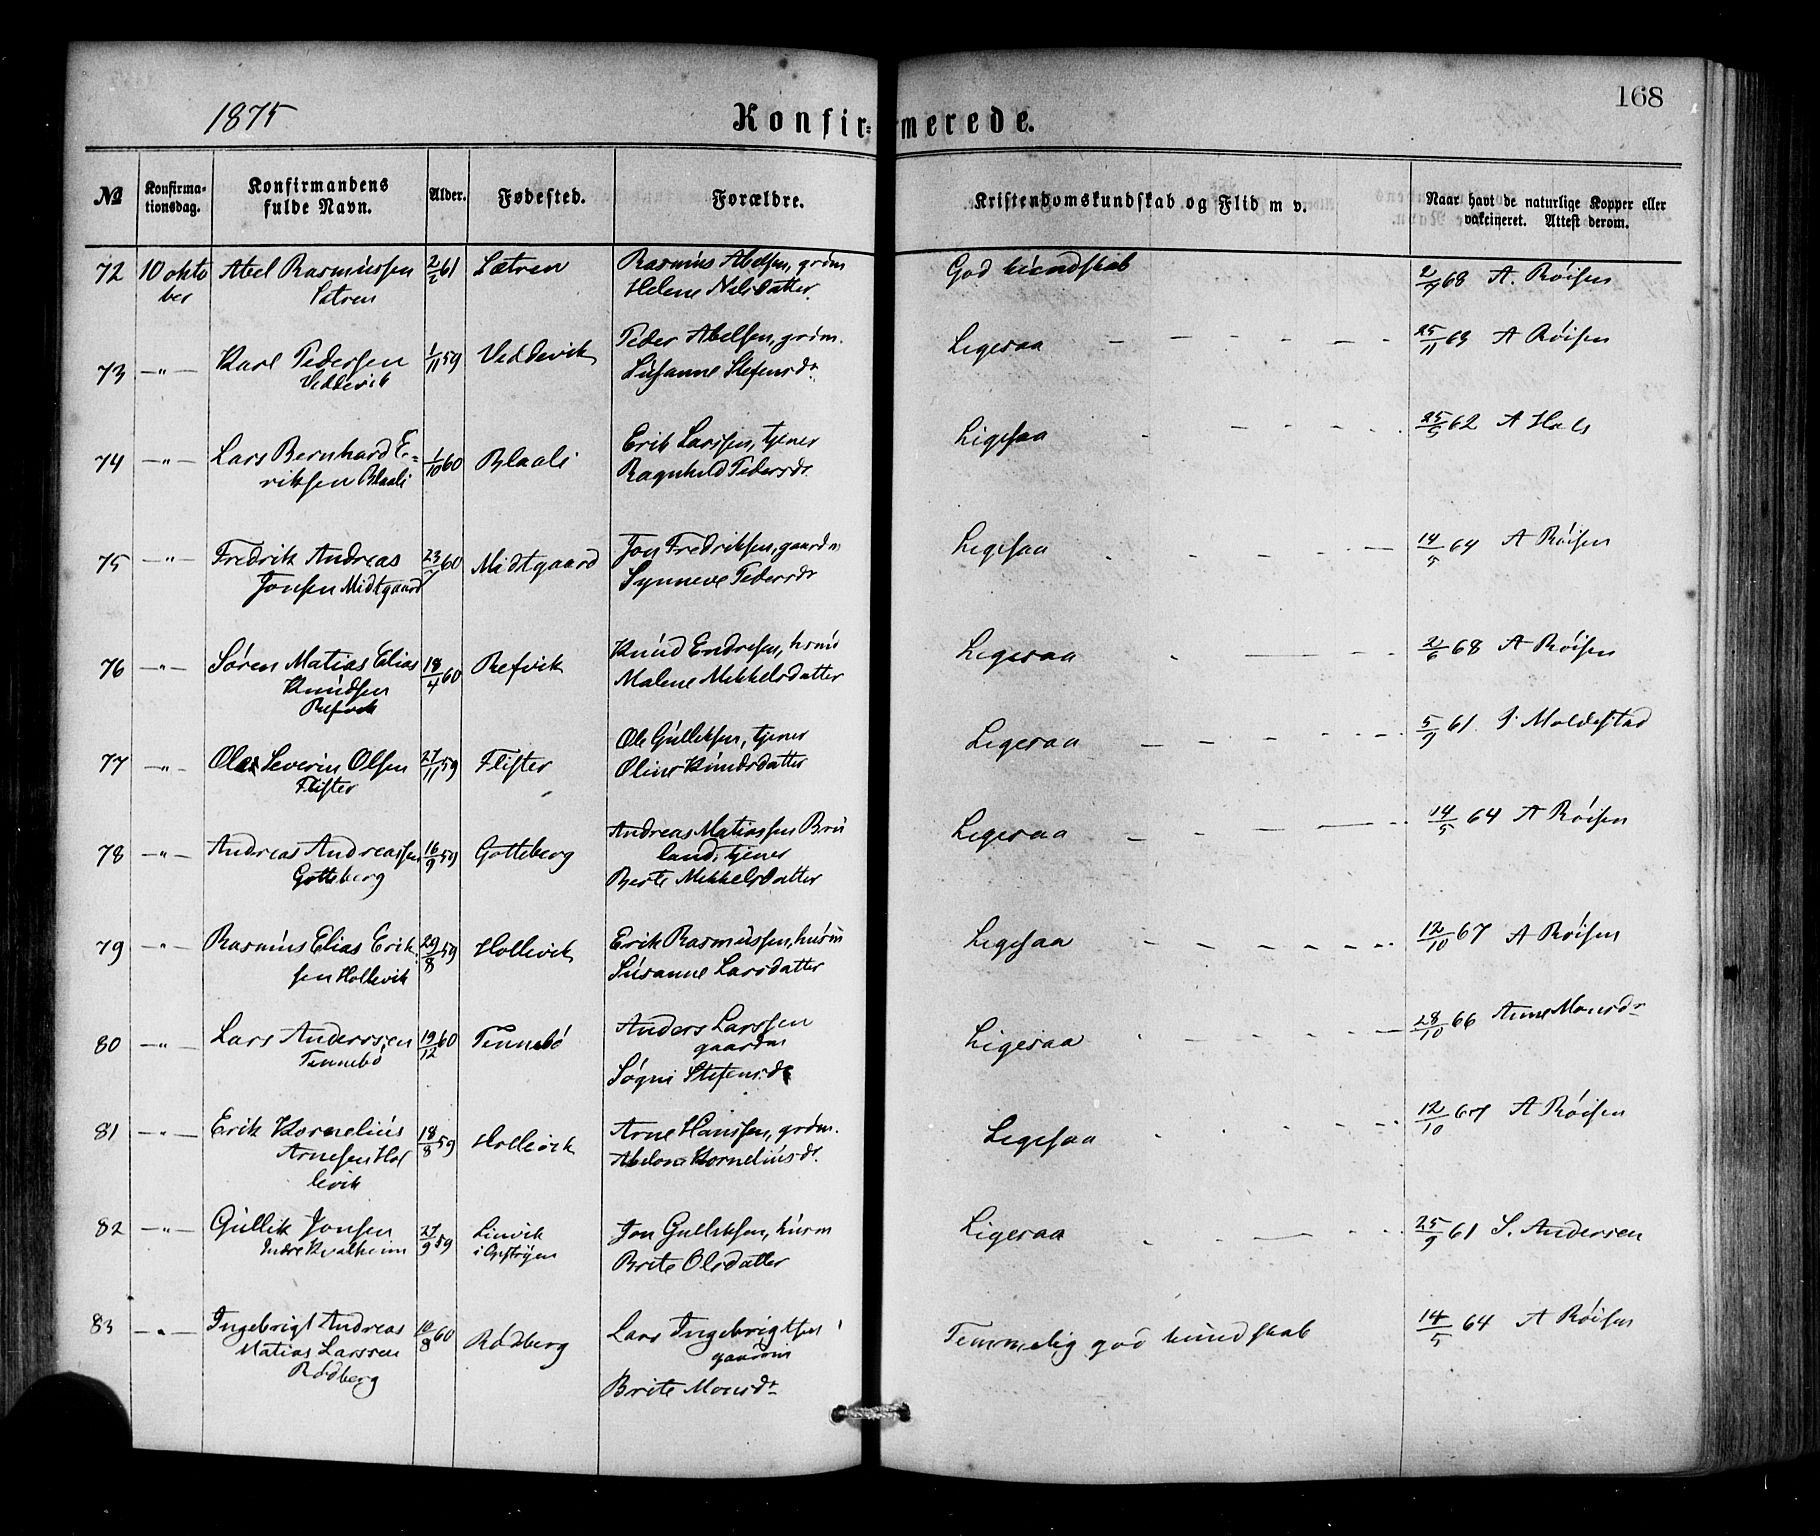 168
1875 Konfir=merede.
№ Konfirma-tionsdag. Konfirmandens fulde Navn. Alder. Fødested. Forældre. Kristendomskundskab og Flid m v. Naar havt de naturlige Kopper eller vakcineret. Attest derom.
72 10 okto Abel Rasmussen 61 Sætren Rasmus Abelsen, grdm God kundskab 68 A. Røisen
ber Sætren Helene Nilsdatter
73 —"— Karl Pedersen 1/11 59 Veddevik Peder Abelsen, grdm. Ligesaa 25/11 63 A Røisen
Veddevik Susanne Stefensdr
74 —"— Lars Bernhard E= 1/10 60 Blaali Erik Larssen, tjener Ligesaa 25/5 62 A Hals
riksen Blaali Ragnhild Pedersdr
75 —"— Fredrik Andreas 23/7 60 Midtgaard Jon Fredriksen, gaardm Ligesaa 14/5 64 A Røisen
Jonsen Midtgaard Synneve Pedersdr
76 —"— Søren Matias Elias 18/4 60 Refvik Knud Endresen, husm Ligesaa 2/6 68 A Røisen
Knudsen Malene Mekkelsdatter
Refvik
77 —"— Ole Severin Olsen 27/11 59 Flister Ole Gulleksen, tjener Ligesaa 5/9 61. Moldestad
Flister Oline Knudsdatter
78 —"— Andreas Andreassen 16/9 59 Gotteberg Andreas Matiassen Bru Ligesaa 14/5 64 A Røisen
Gotteberg land, tjener
Berte Mekkelsdatter
79 —"— Rasmus Elias Erik 29/8 59 Hollevik Erik Rasmussen, husm Ligesaa 12/10 67 A Røisen
sen Hollevik Susanne Larsdatter
80 —"— Lars Anderssen 19/12 60 Tennebø Anders Larssen Ligesaa 28/10 66 Anne Monsdr
Tennebø gaardm
Søgni Stefensdr
81 —"— Erik Kornelius 18/8 59 Hollevik Arne Hanssen, grdm. Ligesaa 12/10 67 A Røisen
Arnesen Hol Abelone Korneliusdr.
levik
82 —"— Gullik Jonsen 27/9 59 Linvik Jon Gulleksen, husm Ligesaa 25/9 61 S. Andersen
Indre Kvalheim Brite Olsdatter
83 —"— Ingebrigt Andreas 10/8 60 Rødberg Lars Ingebrigtsen Temmelig god kundskab 14/5 64 A Røisen
Matias Larssen gaardm
Rødberg Brite Monsdr